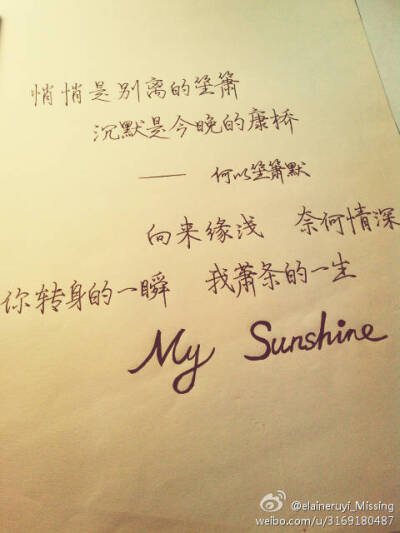 悄悄是别离的笙箫
沉默是今晚的康桥
—— 何以笙箫默
向来缘浅 奈何情深
你转身的一瞬 我萧条的一生
My Sunshine
@elaineruyi_Missing
weibo.com/u/3169180487